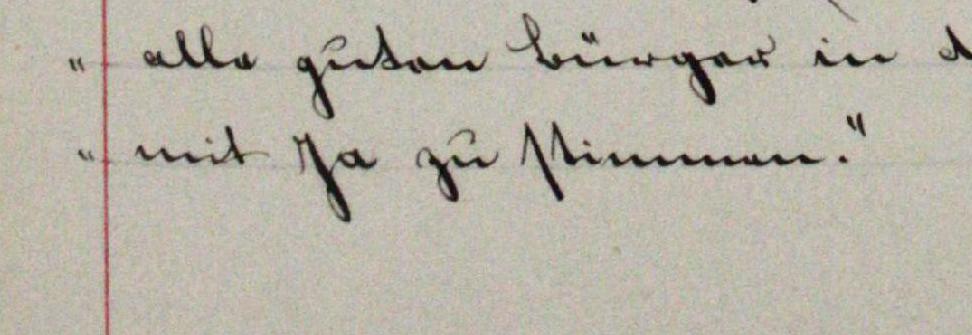 " alle guten Bürger in d
" mit Ja zu stimmen."